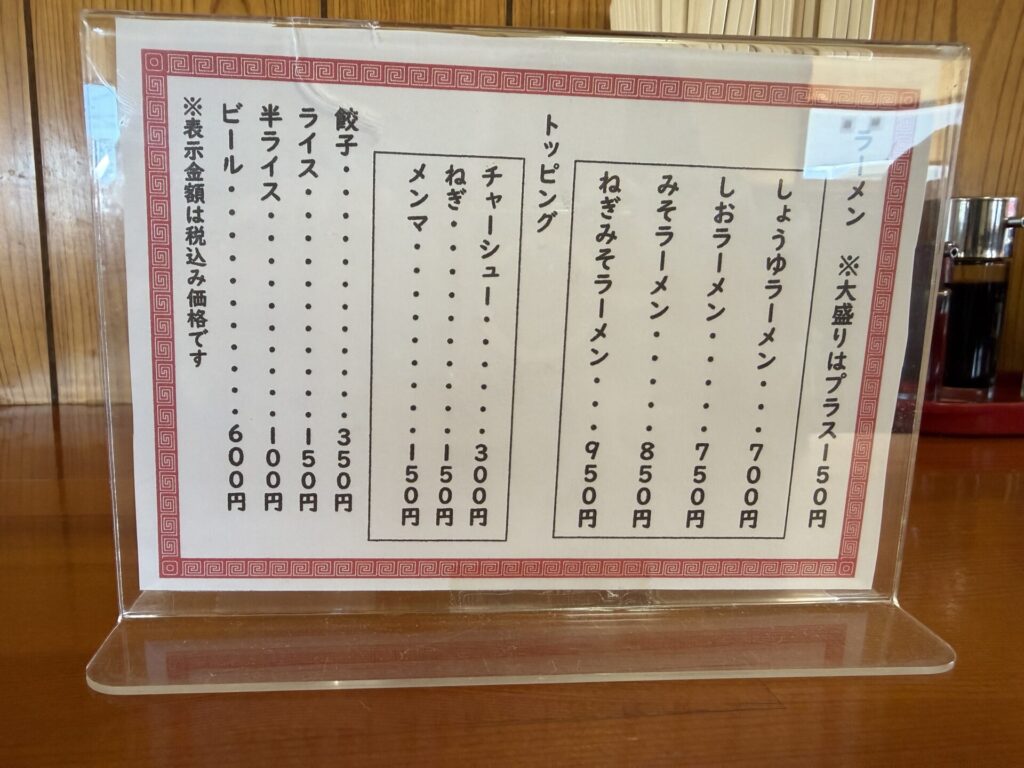 ラーメン ※大盛りはプラス150円
しょうゆラーメン・・・700円
しおラーメン・・・・・750円
みそラーメン・・・・・850円
ねぎみそラーメン・・・950円
トッピング
チャーシュー・・・・・・300円
ねぎ・・・・・・・・・・150円
メンマ・・・・・・・・・150円
餃子・・・・・・・・・・・・350円
ライス・・・・・・・・・・・150円
半ライス・・・・・・・・・・100円
ビール・・・・・・・・・・・600円
※表示金額は税込み価格です